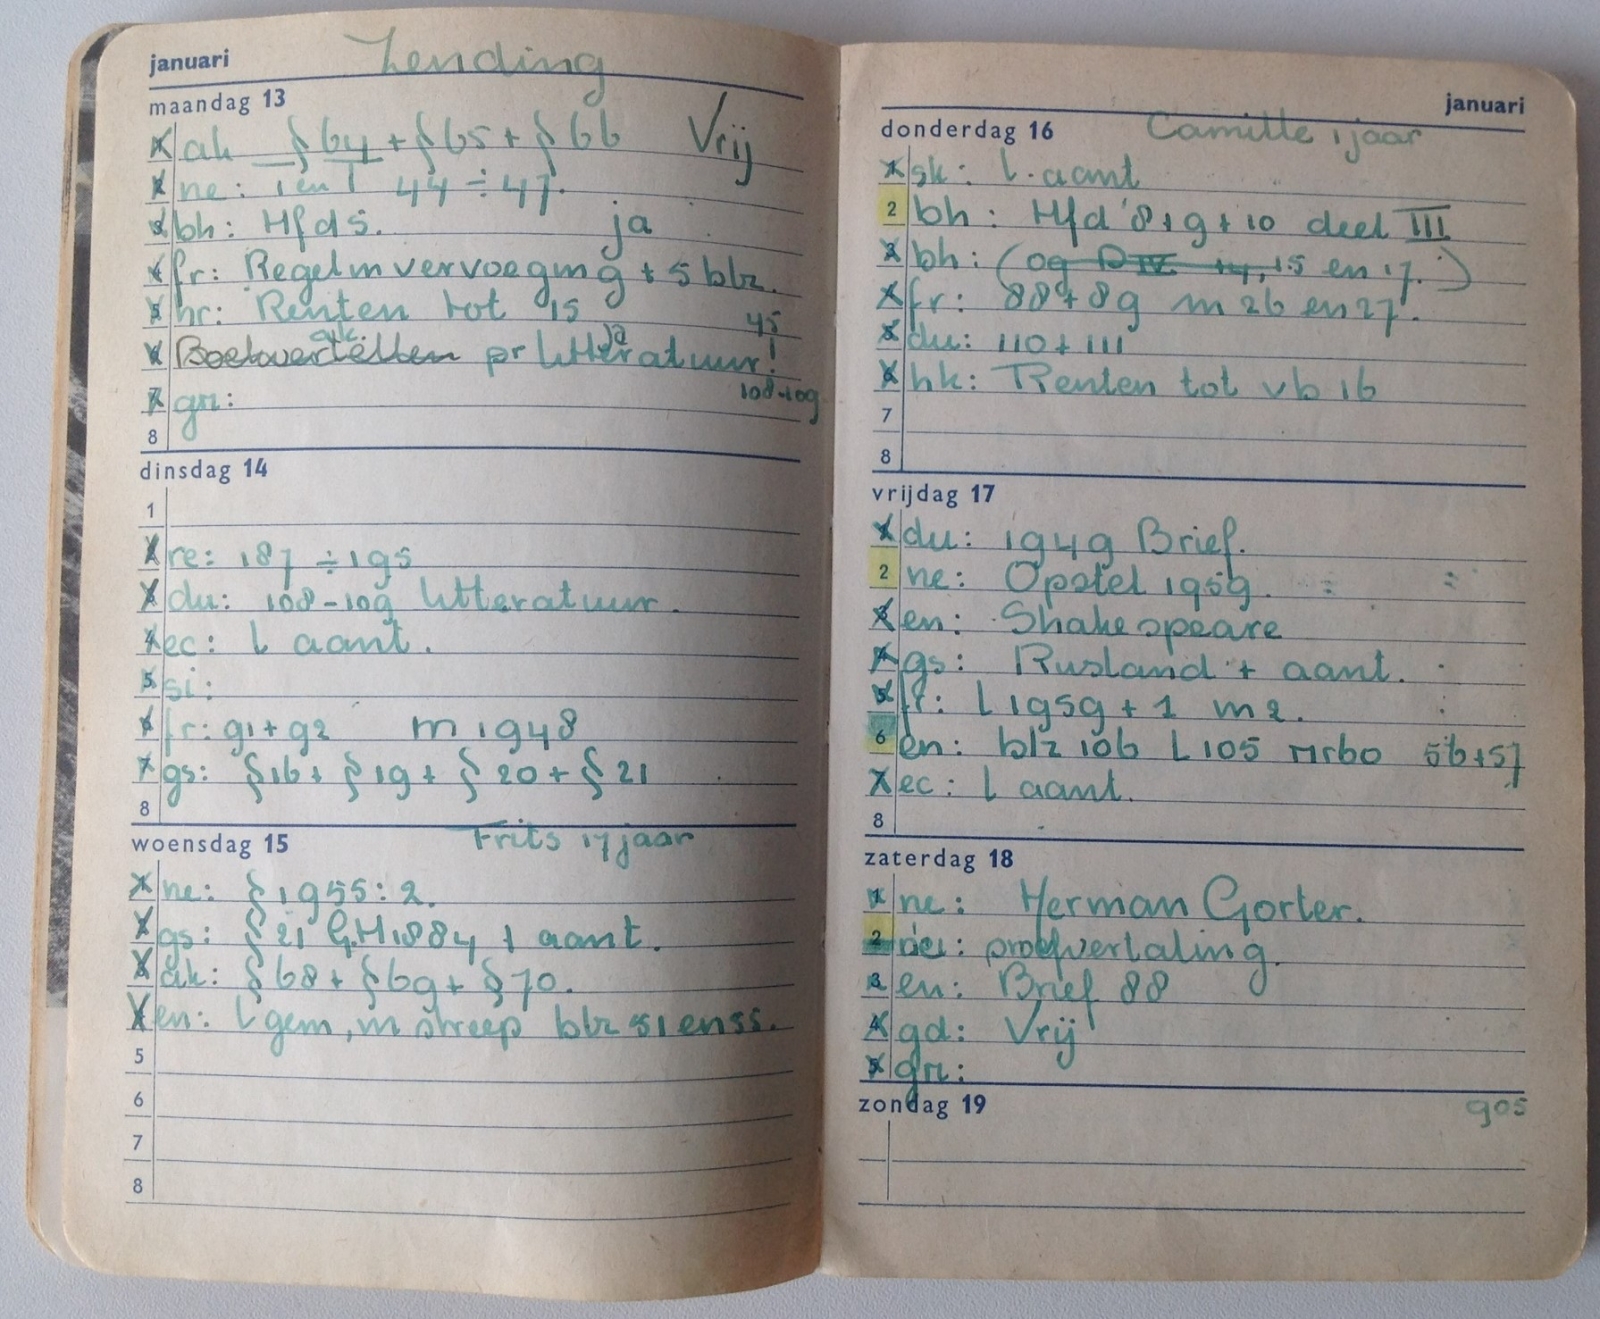 januari Zending
maandag 13
ak § 64 + § 65 + § 66 Vrij
ne: 1 en 1 44 ÷ 47.
bh: Hfd 5. ja
fr: Regelm vervoeging + 5 blz.
hr: Renten tot 15
45
Boekvertellen pr litteratuur!
7 gn: 108-109
8
dinsdag 14
1
re: 187 ÷ 195
du: 108-109 litteratuur.
4 ec: l aant.
5 si:
fr: 91 + 92 m 1948
gs: § 16 + § 19 + § 20 + § 21
8
woensdag 15 Frits 17 jaar
ne: § 1955: 2.
gs: § 21 G.H 1884 + aant.
ak: § 68 + § 69 + § 70.
en: l gem, m streep blz 51 en 55.
5
6
7
8
januari
donderdag 16 Camille 1 jaar
sk: l. aant
2 bh: Hfd 8 + 9 + 10 deel III
3 bh: 15 en 17.)
fr: 88 + 89 m 26 en 27.
du: 110 + 111
hk: Renten tot vb 16
7
8
vrijdag 17
du: 1949 Brief.
2 ne: Opstel 1959.
en: Shakespeare
gs: Rusland + aant.
fr: L 1959 + 1 m 2.
6 en: blz 106 L 105 56+57
7 ec: l aant.
8
zaterdag 18
1 ne: Herman Gorter.
2 proefvertaling.
3 en: Brief 88
4 gd: Vrij
5 gn:
zondag 19 905